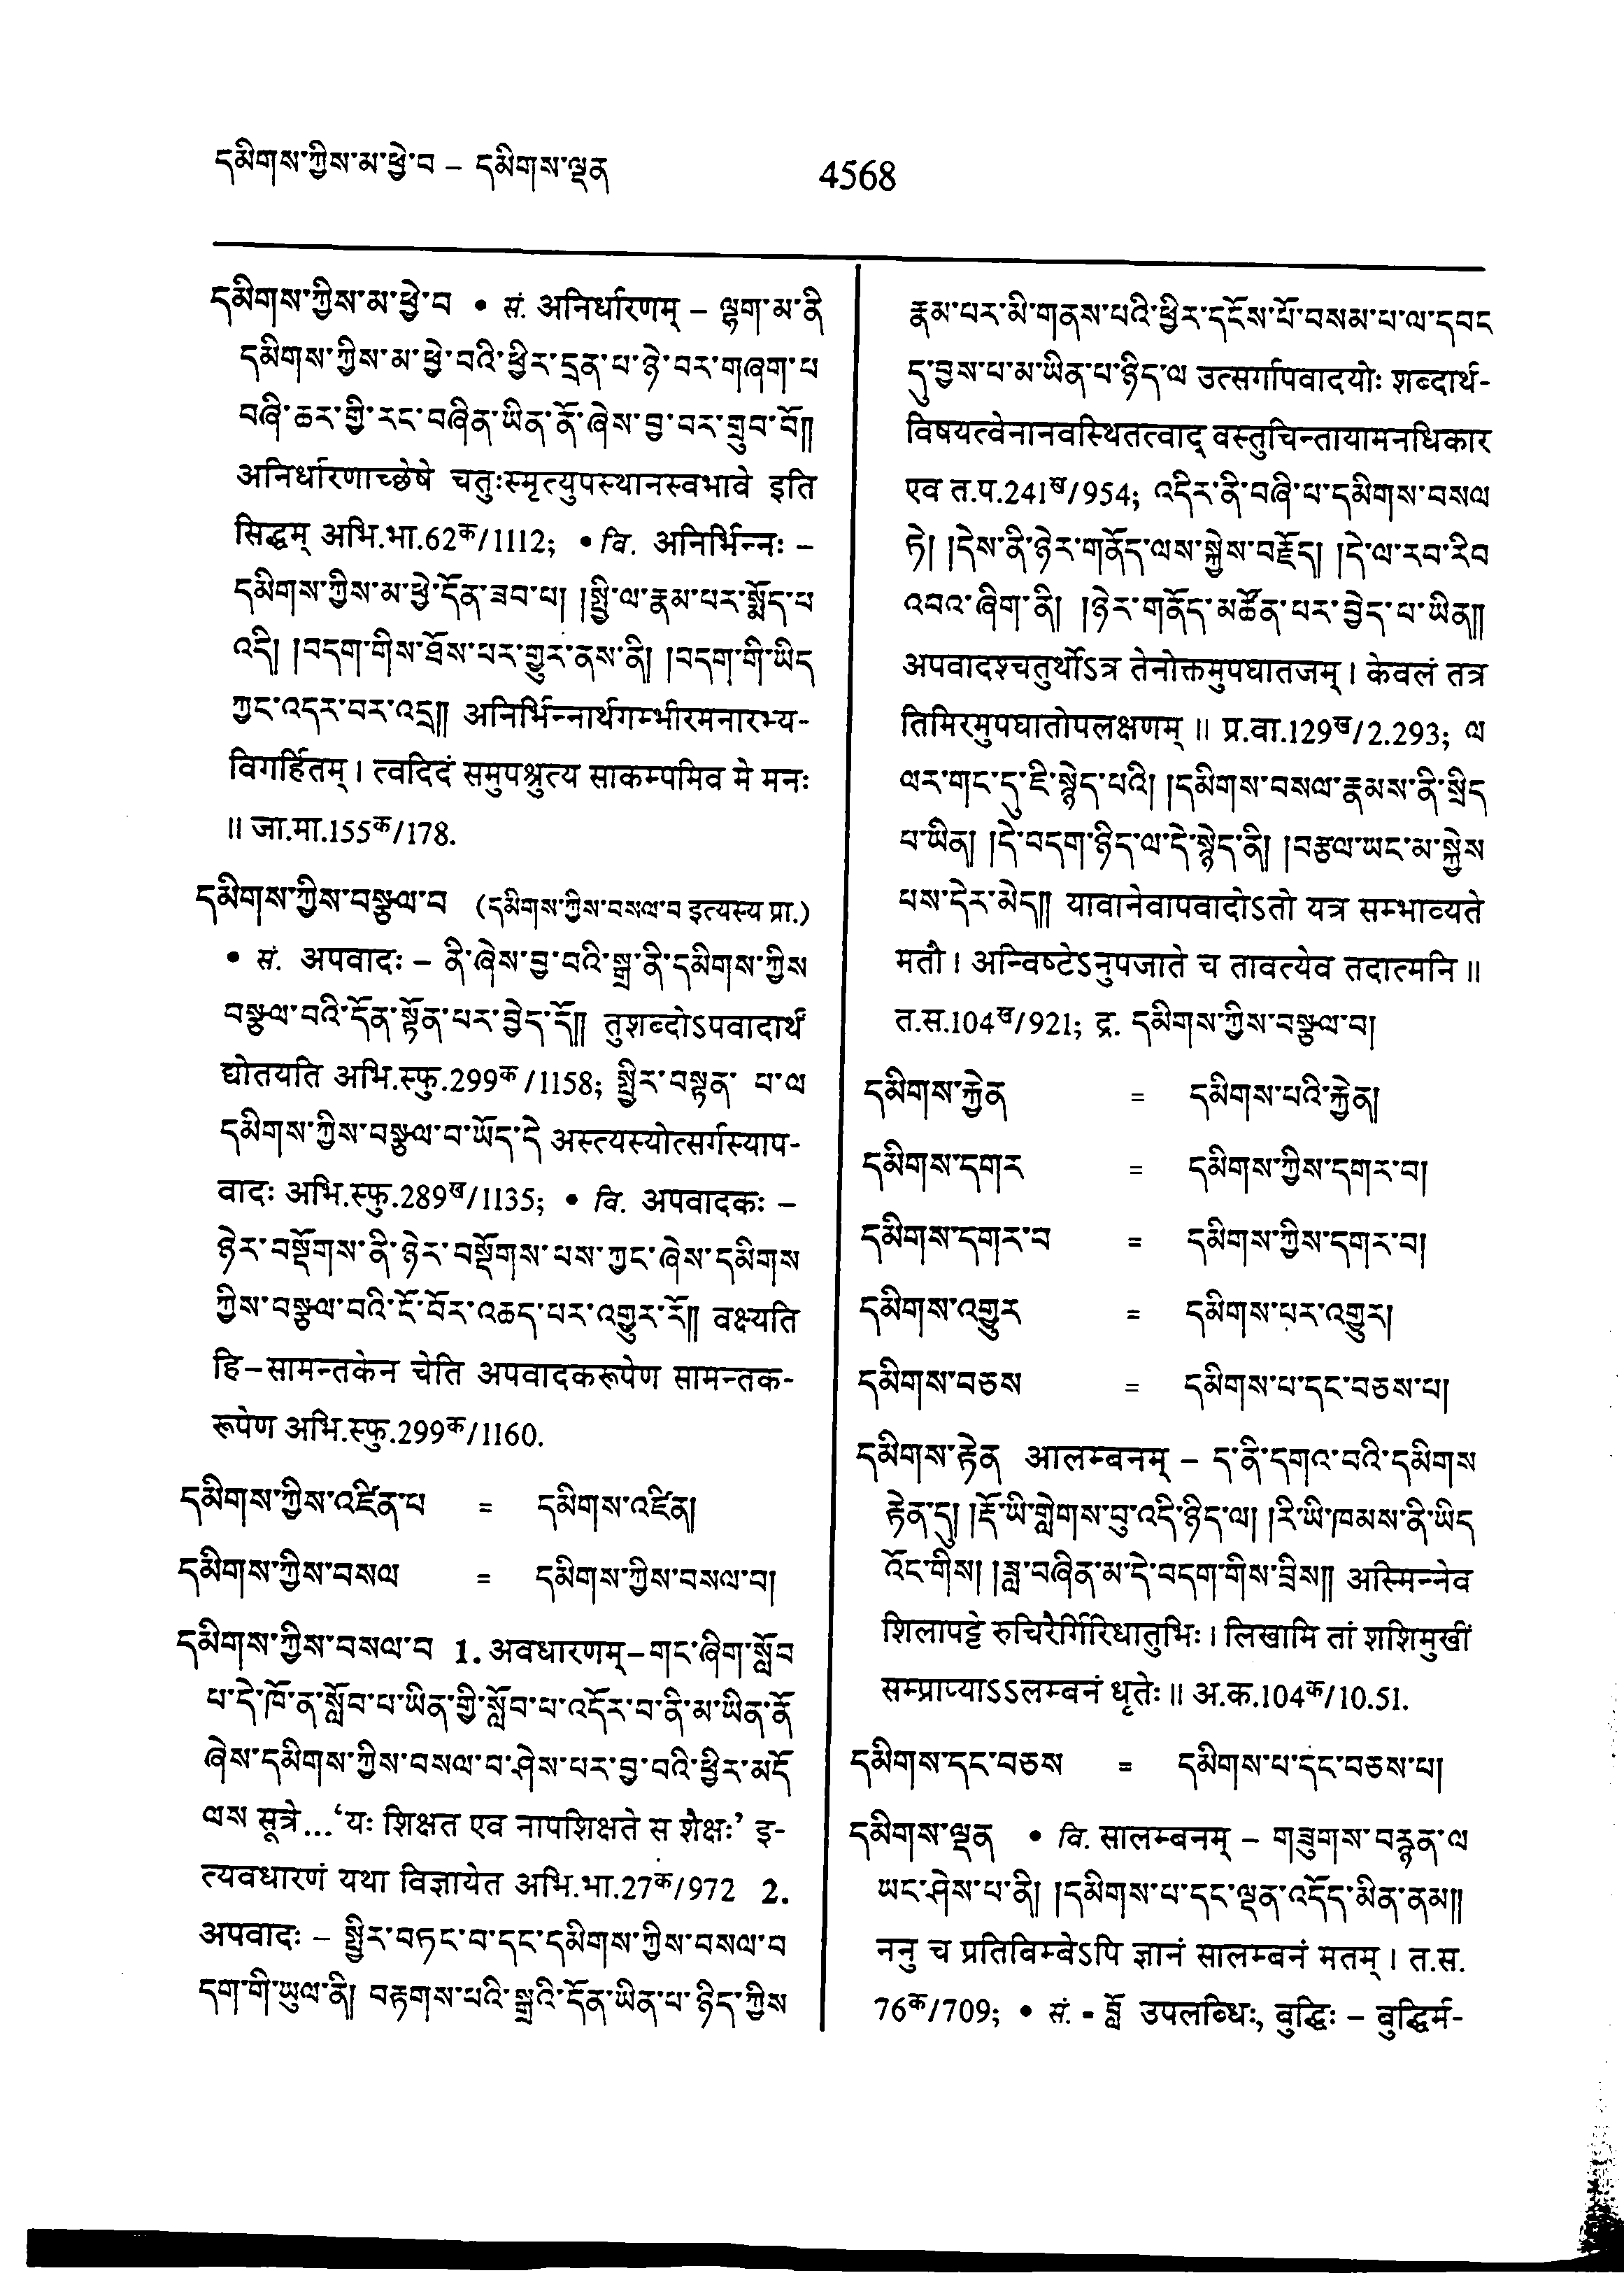 དམིགས་ཀྱིས་མ་ཕྱེ་བ – དམིགས་ལྡན
4568
དམིགས་ཀྱིས་མ་ཕྱེ་བ • सं. अनिर्धारणम् – ལྷག་མ་ནི
དམིགས་ཀྱིས་མ་ཕྱེ་བའི་ཕྱིར་དྲན་པ་ཉེ་བར་གཞག་པ
བཞི་ཆར་གྱི་རང་བཞིན་ཡིན་ནོ་ཞེས་བྱ་བར་གྲུབ་བོ།།
अनिर्धारणाच्छेषे चतुःस्मृत्युपस्थानस्वभावे इति
सिद्धम् अभि.भा.62क/1112; • वि. अनिर्भिन्नः –
དམིགས་ཀྱིས་མ་ཕྱེ་དོན་ཟབ་པ། །སྤྱི་ལ་རྣམ་པར་སྨོད་པ
འདི། །བདག་གིས་ཐོས་པར་གྱུར་ནས་ནི། །བདག་གི་ཡིད
ཀྱང་འདར་བར་འདྲ།། अनिर्भिन्नार्थगम्भीरमनारभ्य-
विगर्हितम्। त्वदिदं समुपश्रुत्य साकम्पमिव मे मनः
॥ जा.मा.155क/178.
དམིགས་ཀྱིས་བསྩལ་བ (དམིགས་ཀྱིས་བསལ་བ इत्यस्य प्रा.)
• सं. अपवादः – ནི་ཞེས་བྱ་བའི་སྒྲ་ནི་དམིགས་ཀྱིས
བསྩལ་བའི་དོན་སྟོན་པར་བྱེད་དོ།། तुशब्दोऽपवादार्थं
द्योतयति अभि.स्फु.299क/1158; སྤྱིར་བསྟན་ པ་ལ
དམིགས་ཀྱིས་བསྩལ་བ་ཡོད་དེ अस्त्यस्योत्सर्गस्याप-
वादः अभि.स्फु.289ख/1135; • वि. अपवादकः –
ཉེར་བསྡོགས་ནི་ཉེར་བསྡོགས་པས་ཀྱང་ཞེས་དམིགས
ཀྱིས་བསྩལ་བའི་ངོ་བོར་འཆད་པར་འགྱུར་རོ།། वक्ष्यति
हि–सामन्तकेन चेति अपवादकरूपेण सामन्तक-
रूपेण अभि.स्फु.299क/1160.
དམིགས་ཀྱིས་འཛིན་པ = དམིགས་འཛིན།
དམིགས་ཀྱིས་བསལ = དམིགས་ཀྱིས་བསལ་བ།
དམིགས་ཀྱིས་བསལ་བ 1. अवधारणम्–གང་ཞིག་སློབ
པ་དེ་ཁོ་ན་སློབ་པ་ཡིན་གྱི་སློབ་པ་འདོར་བ་ནི་མ་ཡིན་ནོ
ཞེས་དམིགས་ཀྱིས་བསལ་བ་ཤེས་པར་བྱ་བའི་ཕྱིར་མདོ
ལས सूत्रे...‘यः शिक्षत एव नापशिक्षते स शैक्षः’ इ-
त्यवधारणं यथा विज्ञायेत अभि.भा.27क/972 2.
अपवादः – སྤྱིར་བཏང་བ་དང་དམིགས་ཀྱིས་བསལ་བ
དག་གི་ཡུལ་ནི། བརྟགས་པའི་སྒྲའི་དོན་ཡིན་པ་ཉིད་ཀྱིས
རྣམ་པར་མི་གནས་པའི་ཕྱིར་དངོས་པོ་བསམ་པ་ལ་དབང
དུ་བྱས་པ་མ་ཡིན་པ་ཉིད་ལ उत्सर्गापवादयोः शब्दार्थ-
विषयत्वेनानवस्थितत्वाद् वस्तुचिन्तायामनधिकार
एव त.प.241ख/954; འདིར་ནི་བཞི་པ་དམིགས་བསལ
ཏེ། །དེས་ནི་ཉེར་གནོད་ལས་སྐྱེས་བརྗོད། །དེ་ལ་རབ་རིབ
འབའ་ཞིག་ནི། །ཉེར་གནོད་མཚོན་པར་བྱེད་པ་ཡིན།།
अपवादश्चतुर्थोऽत्र तेनोक्तमुपघातजम्। केवलं तत्र
तिमिरमुपघातोपलक्षणम्॥ प्र.वा.129ख/2.293; ལ
ལར་གང་དུ་ཇི་སྙེད་པའི། །དམིགས་བསལ་རྣམས་ནི་སྲིད
པ་ཡིན། །དེ་བདག་ཉིད་ལ་དེ་སྙེད་ནི། །བརྩལ་ཡང་མ་སྐྱེས
པས་དེར་མེད།། यावानेवापवादोऽतो यत्र सम्भाव्यते
मतौ। अन्विष्टेऽनुपजाते च तावत्येव तदात्मनि॥
त.स.104ख/921; द्र. དམིགས་ཀྱིས་བསྩལ་བ།
དམིགས་རྐྱེན = དམིགས་པའི་རྐྱེན།
དམིགས་དགར = དམིགས་ཀྱིས་དགར་བ།
དམིགས་དགར་བ = དམིགས་ཀྱིས་དགར་བ།
དམིགས་འགྱུར = དམིགས་པར་འགྱུར།
དམིགས་བཅས = དམིགས་པ་དང་བཅས་པ།
དམིགས་རྟེན आलम्बनम् – ད་ནི་དགའ་བའི་དམིགས
རྟེན་དུ། །རྡོ་ཡི་གླེགས་བུ་འདི་ཉིད་ལ། །རི་ཡི་ཁམས་ནི་ཡིད
འོང་གིས། །ཟླ་བཞིན་མ་དེ་བདག་གིས་བྲིས།། अस्मिन्नेव
शिलापट्टे रुचिरैर्गिरिधातुभिः। लिखामि तां शशिमुखीं
सम्प्राप्याऽऽलम्बनं धृतेः॥ अ.क.104क/10.51.
དམིགས་དང་བཅས = དམིགས་པ་དང་བཅས་པ།
དམིགས་ལྡན • वि. सालम्बनम् – གཟུགས་བརྙན་ལ
ཡང་ཤེས་པ་ནི། །དམིགས་པ་དང་ལྡན་འདོད་མིན་ནམ།།
ननु च प्रतिबिम्बेऽपि ज्ञानं सालम्बनं मतम्। त.स.
76क/709; • सं. = བློ उपलब्धिः, बुद्धिः – बुद्धिर्म-